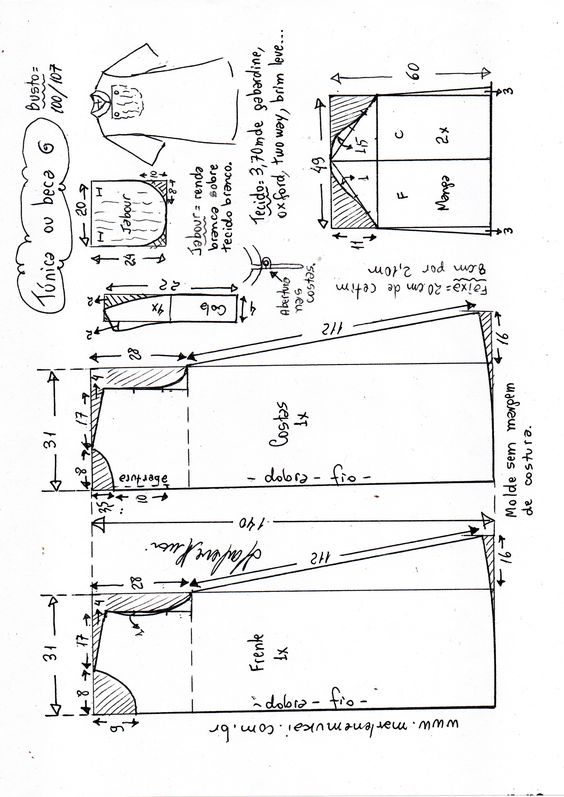 Túnica ou beca G
Busto=
100/107
20
24
10
8
Jabour
Jabour = renda
branca sobre
tecido branco.
Tecido= 3,70m de gabardine,
oxford, two way, brim leve...
49
60
11
1
1,5
F
C
Manga
2x
3
3
22
2
2
4
Gola
4x
Abertura
nas
costas.
Faixa = 20 cm de cetim
8cm por 2,10m
31
8
17
4
28
112
3,5
10
abertura
Costas
1x
- dobra - fio -
16
Molde sem margem
de costura.
140
31
8
17
4
28
112
9
1
Frente
1x
- dobra - fio -
16
www.marlenemukai.com.br